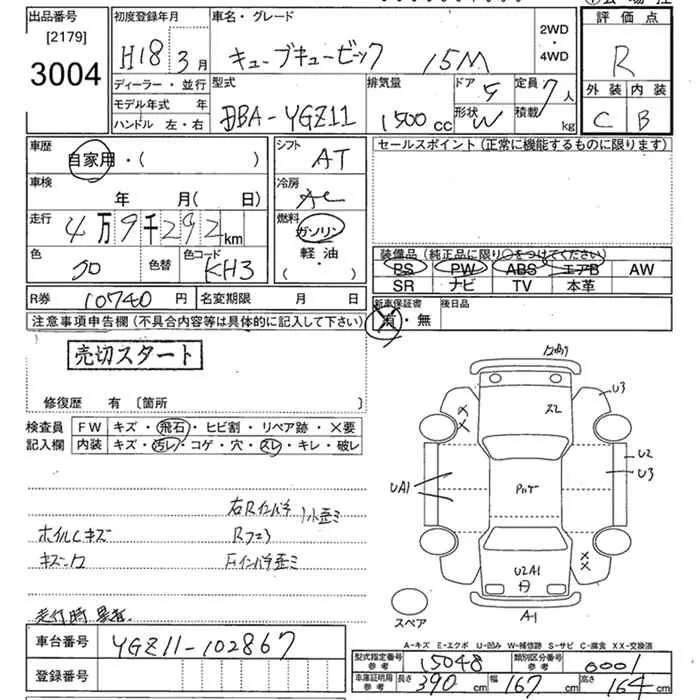 出品番号
[2179]
3004
初度登録年月
H18 3月
車名・グレード
キューブキュービック 15M
2WD
・
4WD
評価点
R
外装 内装
C B
ディーラー・並行
モデル年式 年
ハンドル 左・右
型式
DBA-YGZ11
排気量
1500cc
ドア 5
形状 W
定員 7人
積載 kg
車歴
自家用・( )
車検
年 月(日)
走行
4万9千292km
色
クロ
色替
色コード
KH3
シフト
AT
冷房
AC
燃料
ガソリン
軽・油
( )
セールスポイント(正常に機能するものに限ります)
装備品(純正品に限り○をつけてください)
PS PW ABS エアB AW
SR ナビ TV 本革
R券 10740円 名変期限 月 日
新車保証書
有・無
後日品
注意事項申告欄(不具合内容等は具体的に記入して下さい)
売切スタート
修復歴 有〔箇所 〕
検査員
記入欄
FW キズ・飛石・ヒビ割・リペア跡・×要
内装 キズ・汚レ・コゲ・穴・スレ・キレ・破レ
右Rインパネ 小歪ミ
ホイルCキズ Rフロア
走行時 異音
スレ
U3
U2
U3
UA1
U2A1
A1
スペア
車台番号 YGZ11-102867
登録番号
A-キズ E-エクボ U-凹み W-補修跡 S-サビ C-腐食 XX-交換済
型式指定番号
参考
15048
類別区分番号
参考
0001
車庫証明用
参考
長さ 390cm 幅 167cm 高さ 164cm